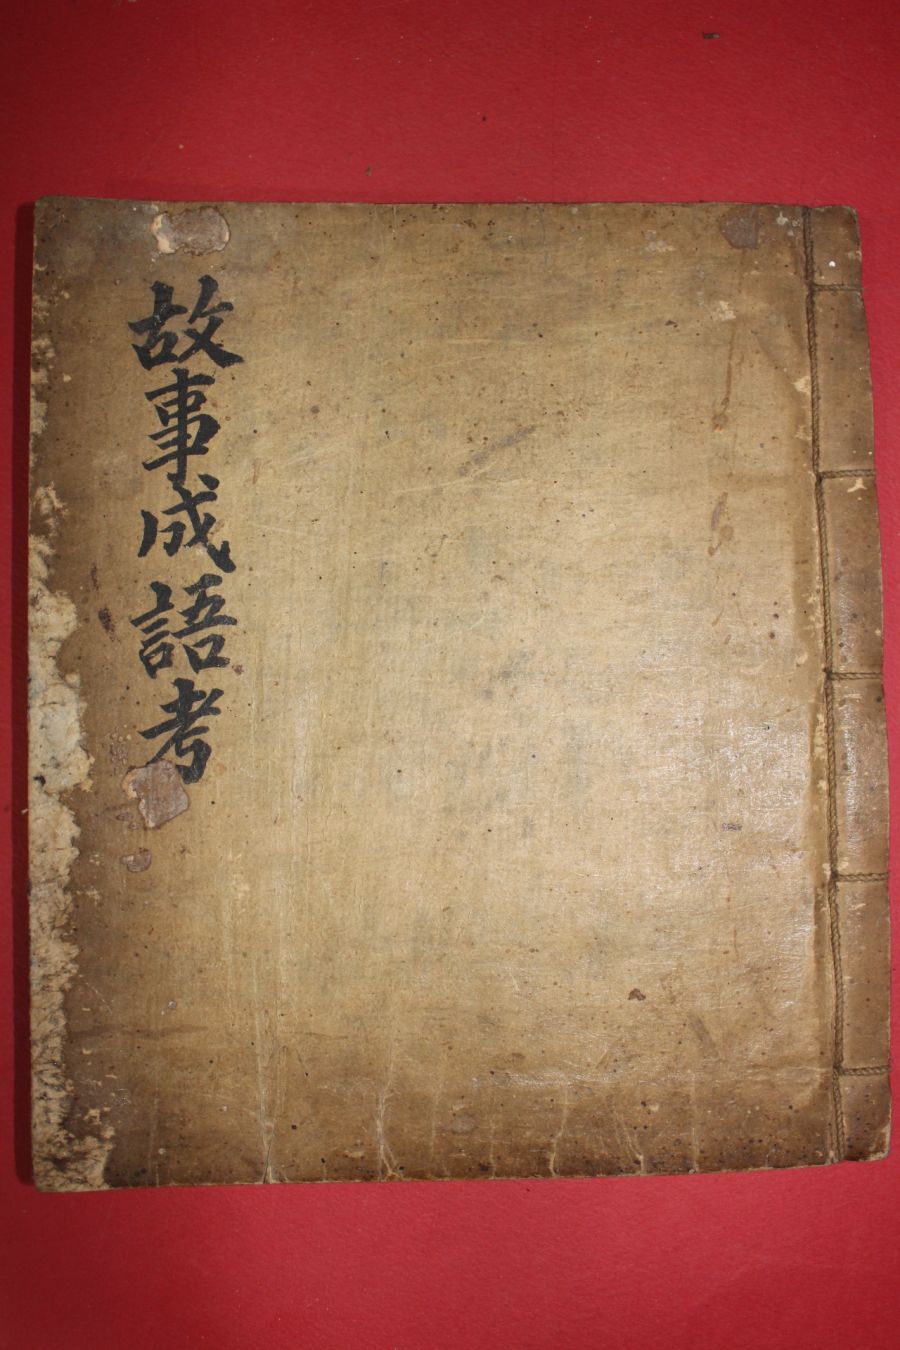 故事成語考